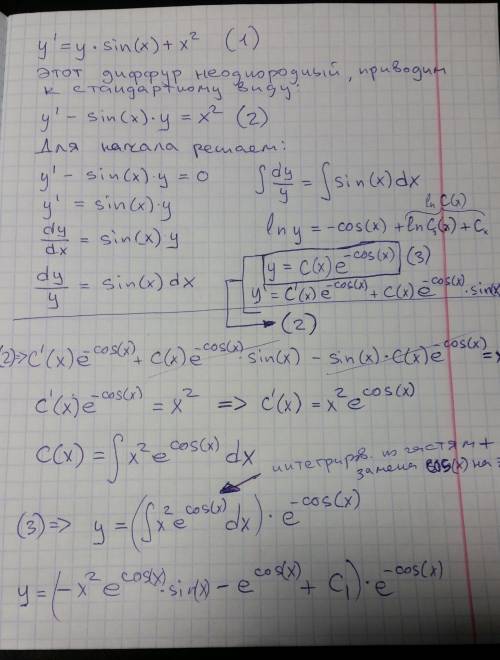 y' = y · sin(x) + x² (1)
Этот диффур неоднородный, приводим
к стандартному виду:
y' - sin(x) · y = x² (2)
Для начала решаем:
y' - sin(x) · y = 0
y' = sin(x) · y
dy/dx = sin(x) · y
dy/y = sin(x) dx
∫ dy/y = ∫ sin(x) dx
ln C(x)
ln y = -cos(x) + ln C₁(x) + Cₓ
y = C(x) e^(-cos(x)) (3)
y' = C'(x) e^(-cos(x)) + C(x) e^(-cos(x)) · sin(x)
(2)
(2) => C'(x) e^(-cos(x)) + C(x) e^(-cos(x)) · sin(x) - sin(x) · C(x) e^(-cos(x)) =
C'(x) e^(-cos(x)) = x² => C'(x) = x² e^(cos(x))
C(x) = ∫ x² e^(cos(x)) dx
интегриров. по частям +
замена cos(x) на
(3) => y = (∫ x² e^(cos(x)) dx) · e^(-cos(x))
y = (-x² e^(cos(x)) · sin(x) - e^(cos(x)) + C₁) · e^(-cos(x))